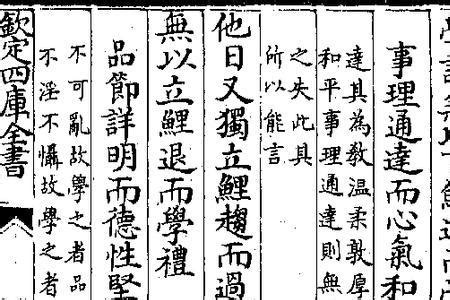 事理通達而心氣和
達其為敎温柔敦厚
和平事理通達則無
之失此其
所以能言
他日又獨立鯉趨而過
無以立鯉退而學禮
品節詳明而德性堅
不可亂故學之者品
不淫不懾故學之者
欽定四庫全書